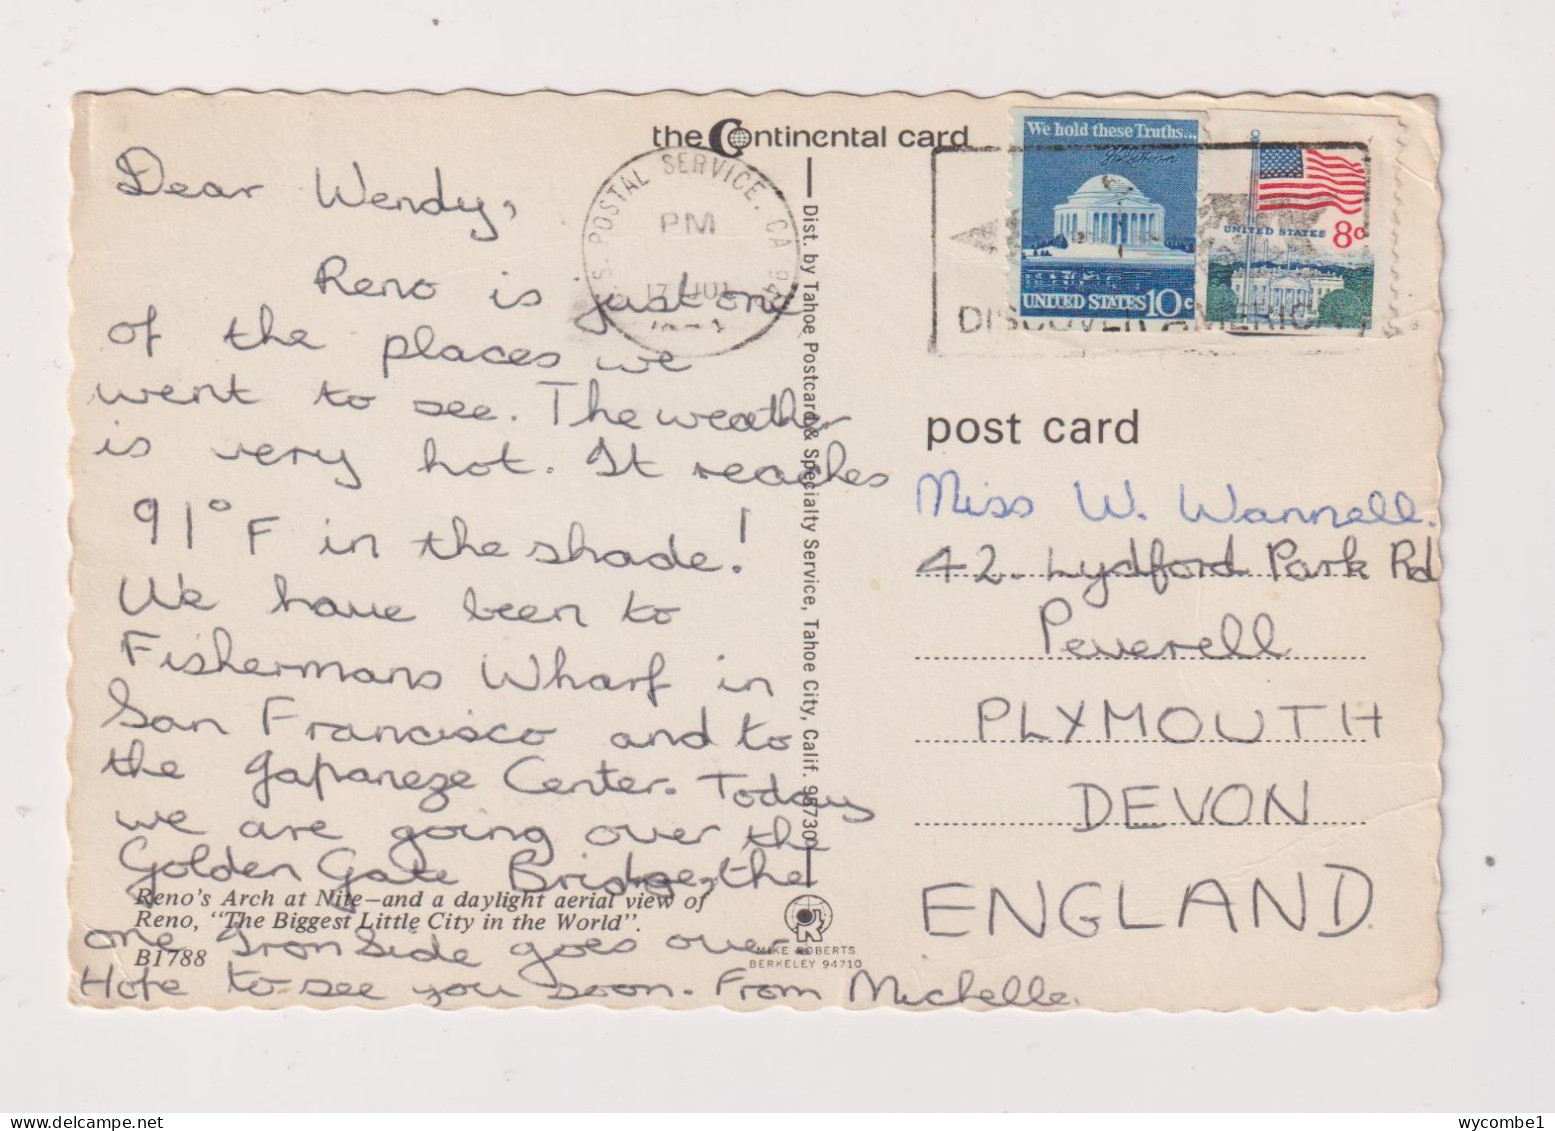 the Continental card
Dear Wendy,
Reno is just one
of the places we
went to see. The weather
is very hot. It reaches
91° F in the shade!
We have been to
Fishermans Wharf in
San Francisco and to
the Japaneze Center. Today
we are going over the
Golden Gate Bridge, the
one IronSide goes over
Hope to see you soon. From Michelle.
Reno's Arch at Nite—and a daylight aerial view of
Reno, "The Biggest Little City in the World".
B1788
Dist. by Tahoe Postcard & Specialty Service, Tahoe City, Calif. 95730
MIKE ROBERTS
BERKELEY 94710
U.S. POSTAL SERVICE, CA 94
PM
17 JUL
We hold these Truths...
UNITED STATES 10c
UNITED STATES 8c
DISCOVER AMERIC
post card
Miss W. Wannell.
42. Lydford Park Rd
Peverell
PLYMOUTH
DEVON
ENGLAND.
wycombe1